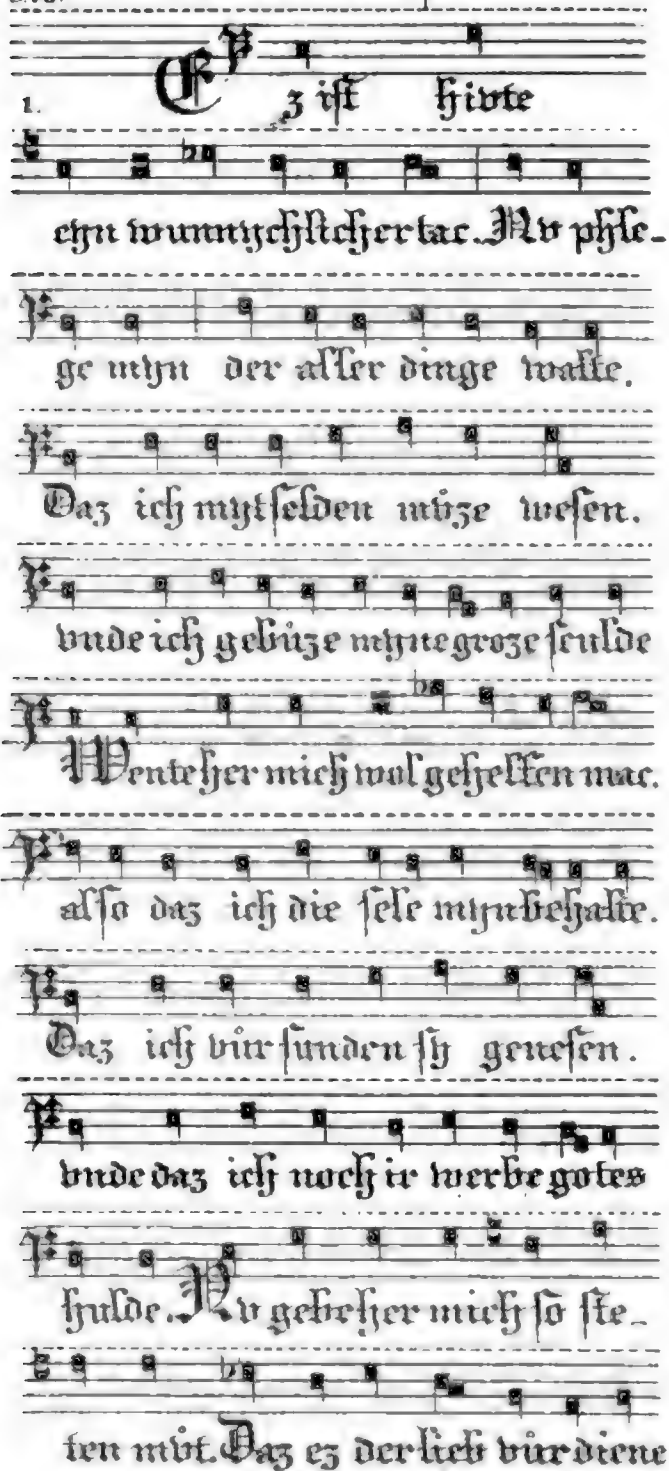 1. Ez ist hivte
eyn wunnychlicher tac. Nv phle-
ge myn der aller dinge walte.
Daz ich myt selden můze wesen.
vnde ich gebůze myne groze sculde
Wente her mich wol gehelfen mac.
also daz ich die sele myn behalte.
Daz ich vůr sunden sy genesen.
vnde daz ich noch ir werbe gotes
hulde. Nv gebe her mich so ste-
ten můt. Daz ez der lieb vůr diene